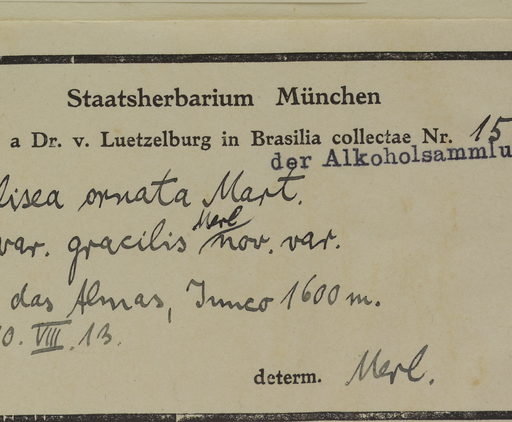 Staatsherbarium München
a Dr. v. Luetzelburg in Brasilia collectae Nr. 15
der Alkoholsammlu
lisea ornata Mart.
var. gracilis Merl nov. var.
das Almas, Junco 1600 m.
0. VIII. 13.
determ. Merl.